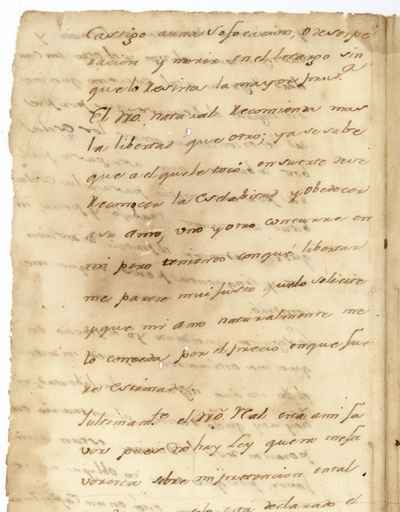 Castigo a una sofocacion, o deses pe
racion y morir en el letargo sin
que lo resista la mayor parte
El dro. natural recomienda mas
la libertad que otro; ya se sabe
que a el que le tocó en suerte deve
reconocer la esclabitud y obedecer
a su amo, uno y otro concurre en
mi pero teniendo con que libertar
me parece mui justo y lo solicite
y que mi amo naturalmente me
lo conceda por el precio en que fue
re estimada
Ultimamte. el dro. Real está a mi fa
vor pues no hay Ley que me
sobre mi pretencion en tal
declarado el